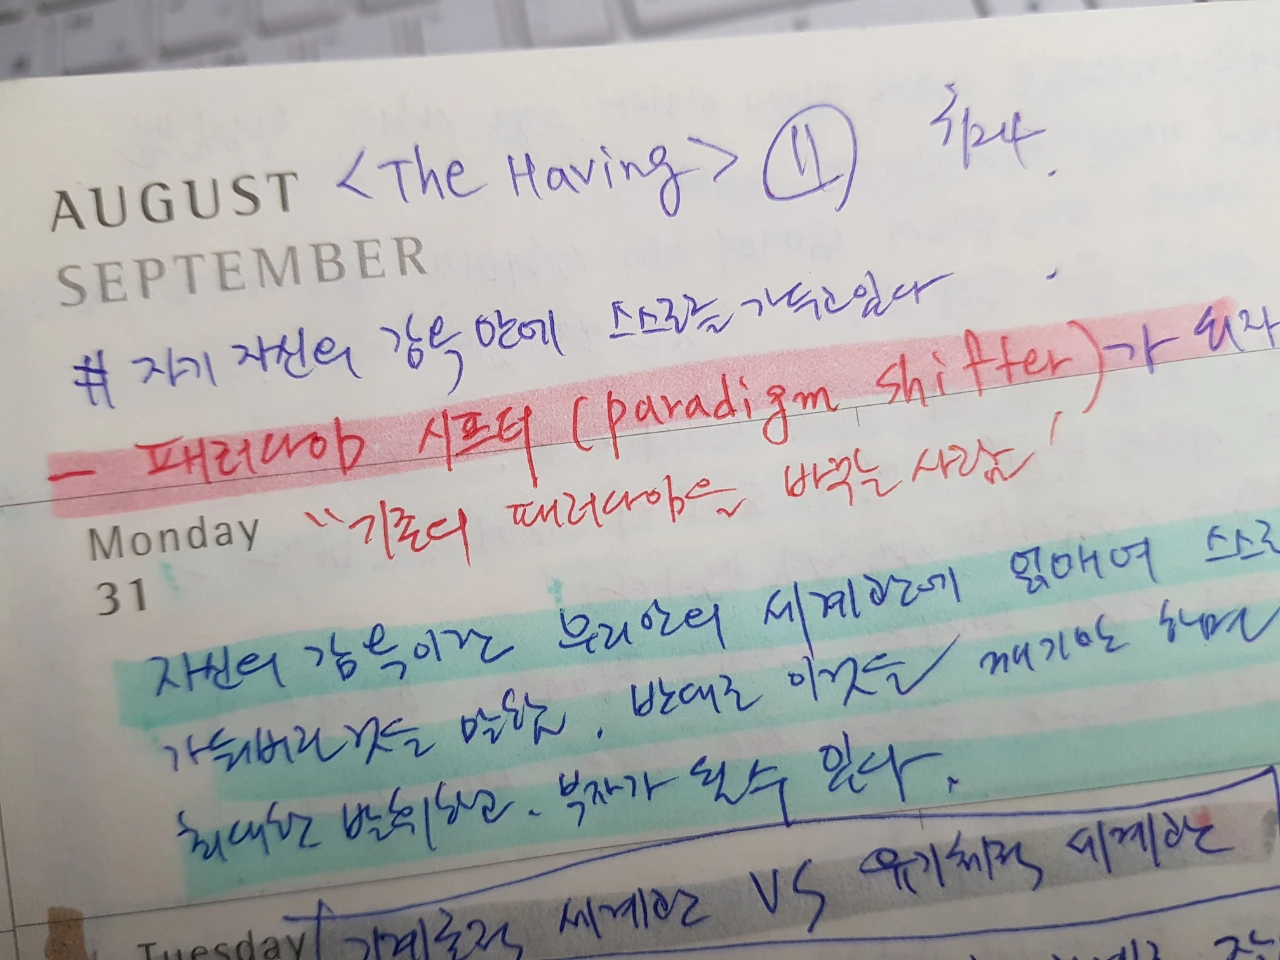 AUGUST <The Having> ⑪ 3/24.
SEPTEMBER
# 자기 자신의 감옥 안에 스스로를 가두고있다
- 패러다임 시프터 (paradigm shifter)가 되자
"기존의 패러다임을 바꾸는 사람"
Monday
31
자신의 감옥이란 우리안의 세계관에 얽매여 스스로
가둬버린것을 말함. 반대로 이것을 깨기만 하면
최대한 발휘하고. 부자가 될수 있다.
기계론적 세계관 VS 유기체적 세계관
Tuesday